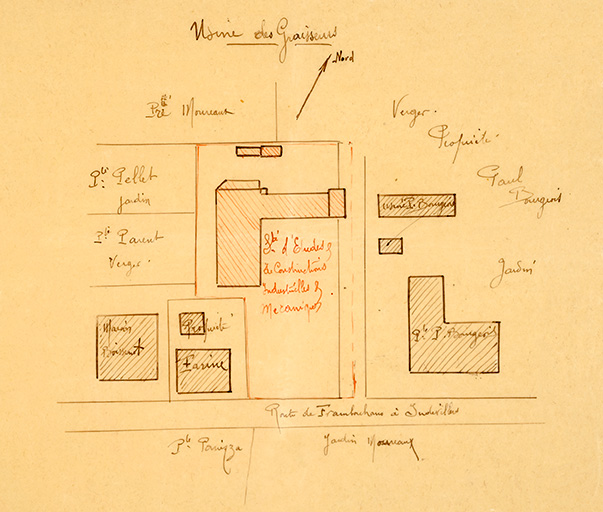 Usine des Graisseurs
Nord
Pté Moureaux
Verger.
Propriété
Paul
Bourgeois
Pté Pellet
Jardin
Usine P. Bourgeois
Pté Parent
Verger.
Sté d'Etudes &
de Constructions
Industrielles &
Mécaniques
Jardin
Maison
Propriété
Farine
Pté P. Bourgeois
Route de Frambouhans à Indevillers
Pté Panizza
Jardin Moureaux